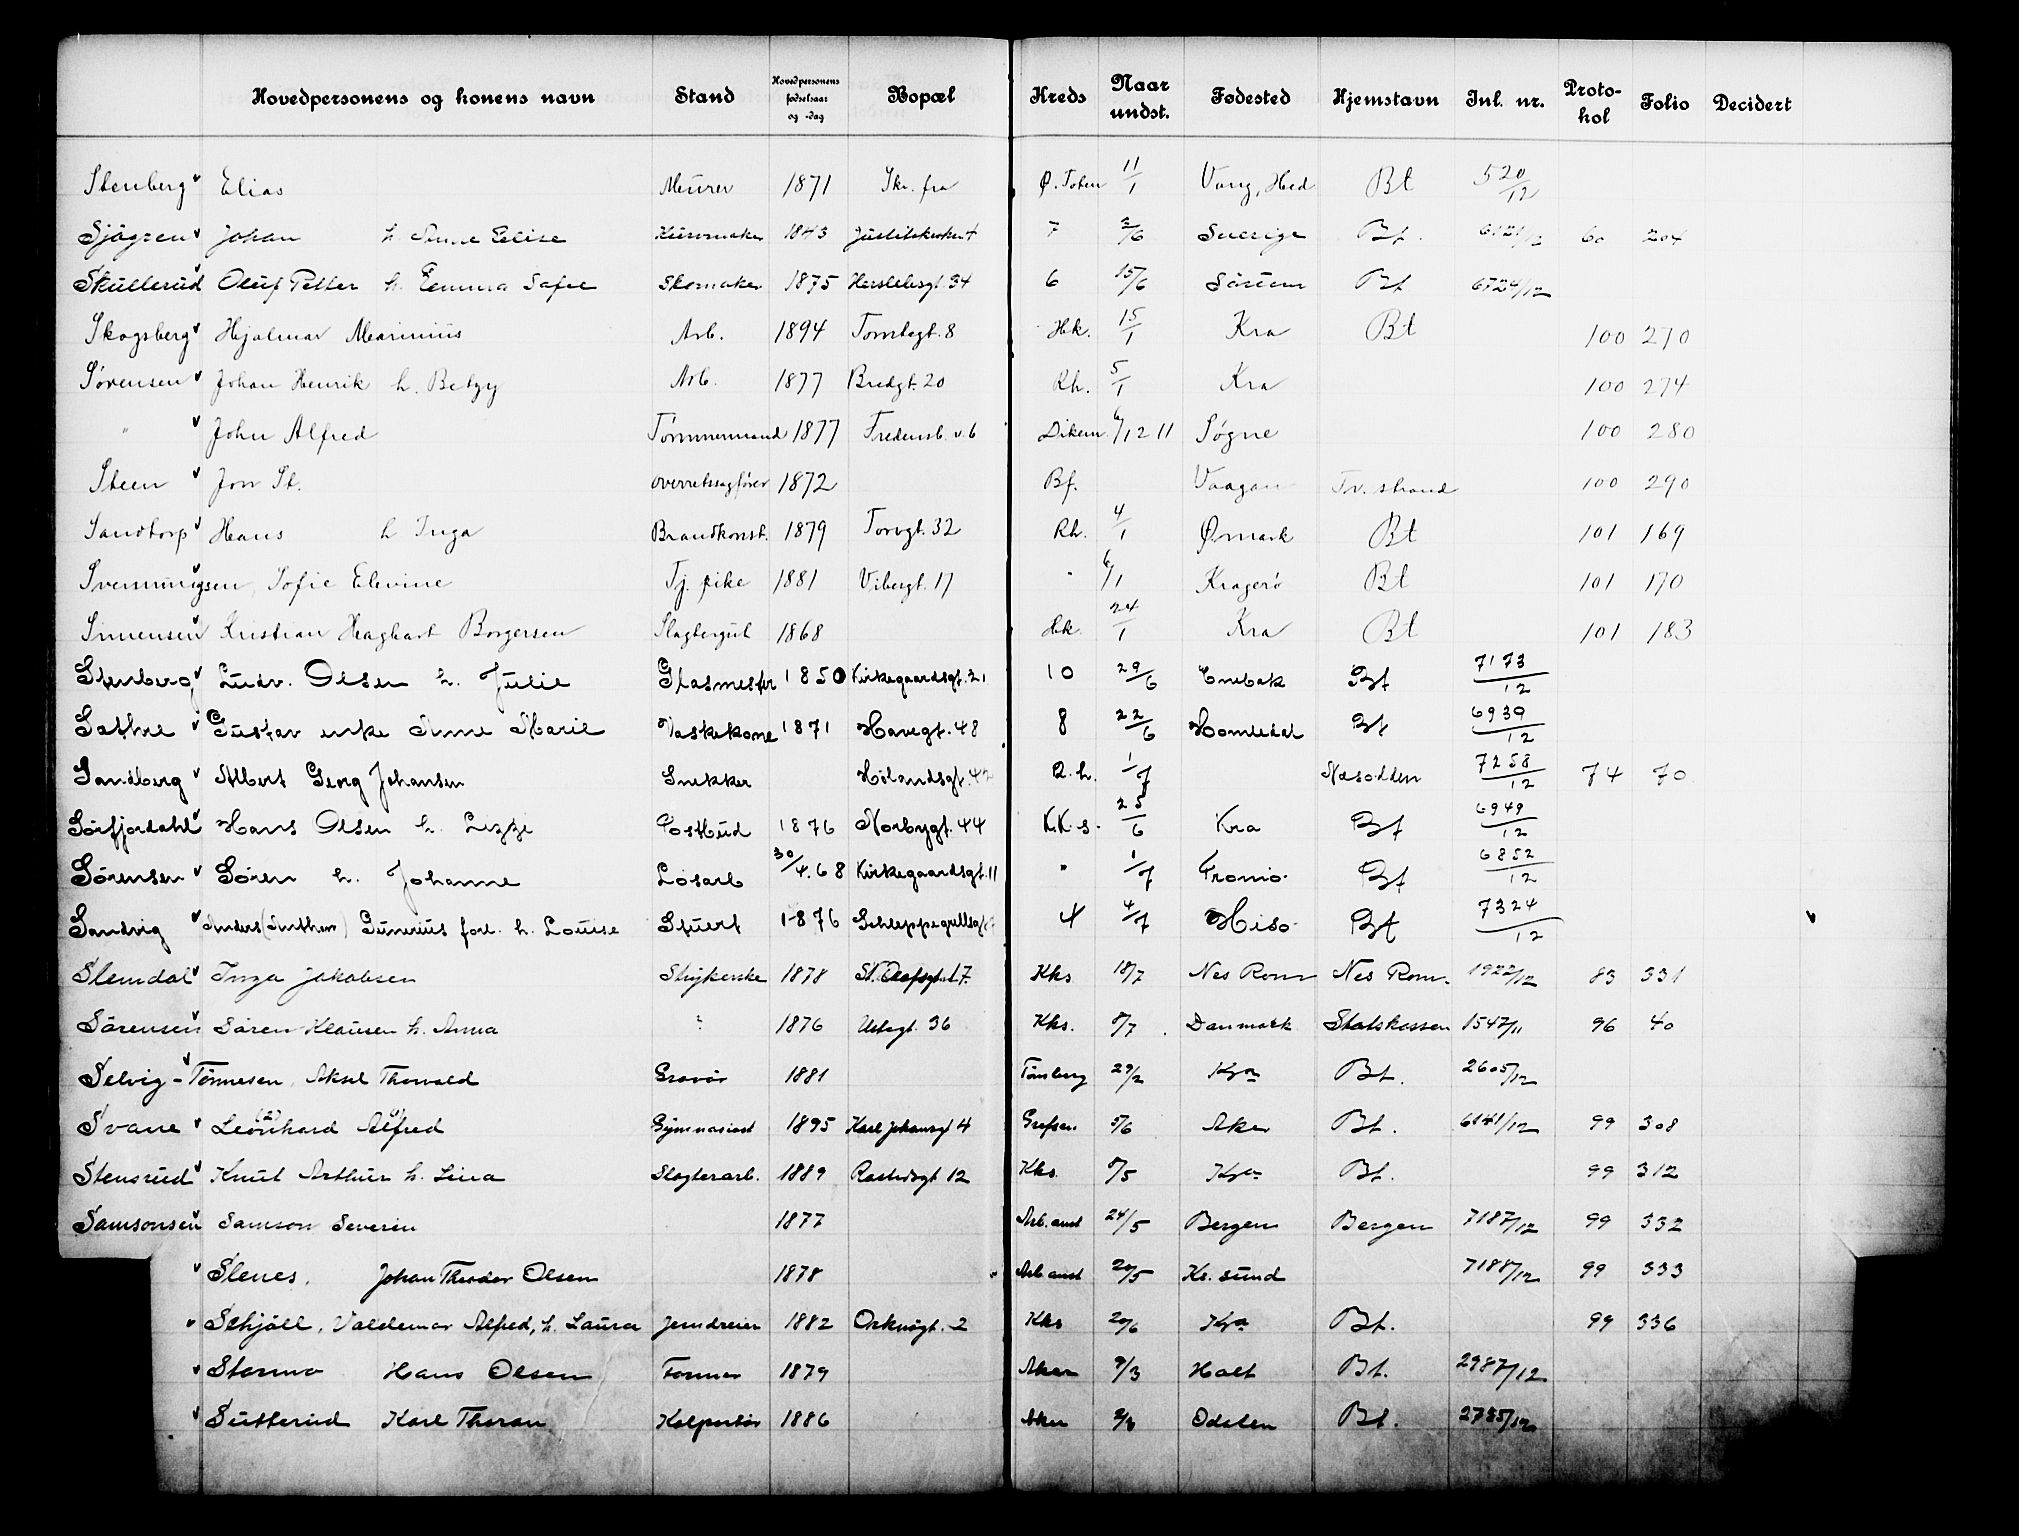 Hovedpersonens og konens navn Stand Hovedpersonens fødselsaar og -dag Bopæl Kreds Naar undst. Fødested Hjemstavn Inl. nr. Protokol Folio Decidert
Stenberg Elias Murer 1871 Skr. fra Ø. Toten 11/1 Vang, Hed Bt 520/12
Sjögren Johan h. Anne Elise 1843 7 2/6 Sverige Bt. 6121/12 60 204
Skullerud Oluf Petter h. Emma Sofie Skomaker 1875 Herslebsgt. 34 6 15/6 Sörum Bt 6724/12
Skogsberg Hjalmar Marinius Arb. 1894 Tomtegt. 8 Hk. 15/1 Kra Bt 100 270
Sørensen Johan Henrik h. Betzy Arb. 1877 Bredgt. 20 Rh. 5/1 Kra 100 274
" John Alfred Tømmermand 1877 Fredensb. v. 6 Dikem. 6/12 11 Søgne 100 280
Steen Jon St. overretssagfører 1872 Bf. Vaagan Tv. strand 100 290
Sandtorp Hans h Inga Brandkonst. 1879 Torvgt. 32 Rh. 4/1 Ømark Bt 101 169
Svenningsen, Sofie Elevine Tj. pike 1881 Vibesgt. 17 " 6/1 Kragerø Bt 101 170
Simensen Kristian Haghart Borgersen Slagtergut 1868 Hk. 24/1 Kra Bt 101 183
Stenberg Ludv. Olsen h. Julie Glasmester 1850 Kirkegaardsgt. 21 10 29/6 Enebak Bt 7173/12
Sathre Gustav enke Anne Marie Vaskekone 1871 Havegt. 48 8 22/6 Homledal Bt 6939/12
Sandberg Albert Georg Johansen Snekker Hølandsgt. 42 R. h. 1/7 Næsodden 7258/12 74 70
Sørfjordahl Hans Olsen h. Lizzi Postbud 1876 Norbygt. 44 K.K.s. 25/6 Kra Bt 6949/12
Sørensen Søren h. Johanne Løsarb 30/4.68 Kirkegaardsgt. 11 " 1/7 Tromö Bt 6852/12
Sandvig Anders (Anthon) Gunerius forl. h. Louise Stuert 1876 Schleppegrellsgt. 4 4/7 Hisö Bt 7324/12
Stemdal Inga Jakobsen Strykerske 1878 St. Olafsgt. 17. Kks 18/7 Nes Rom Nes Rom. 1922/12 83 331
Sörensen Sören Klausen h. Anna " 1876 Urtegt. 36 Kks. 8/7 Danmark Statskassen 1547/11 96 40
Selvig - Tönnesen, Aksel Thorvald Gravör 1881 Tönsberg 29/2 Kra Bt. 2605/12
Svane Leonhard (2) Alfred (1) Gymnasiast 1895 Karl Johansgt 4 Grefsen 5/6 Aker Bt. 6141/12 99 308
Stensrud Knut Arthur h. Lina Slagterarb. 1889 Rostedsgt 12 Kks. 8/5 Kra Bt. 99 312
Samsonsen Samson Severin 1877 Arb. anst 24/5 Bergen Bergen 7187/12 99 332
Stenes, Johan Theodor Olsen 1878 Arb. anst 20/5 Kr. sund 7188/12 99 333
Schjöll, Valdemar Alfred, h. Laura Jerndreier 1882 Orknögt. 2 Kks 20/6 Kra Bt. 99 336
Stormo Hans Olsen Former 1879 Aker 9/3 Holt Bt. 2987/12
Sutterud Karl Thoran Kolportör 1886 Aker Odalen Bt. 2785/12